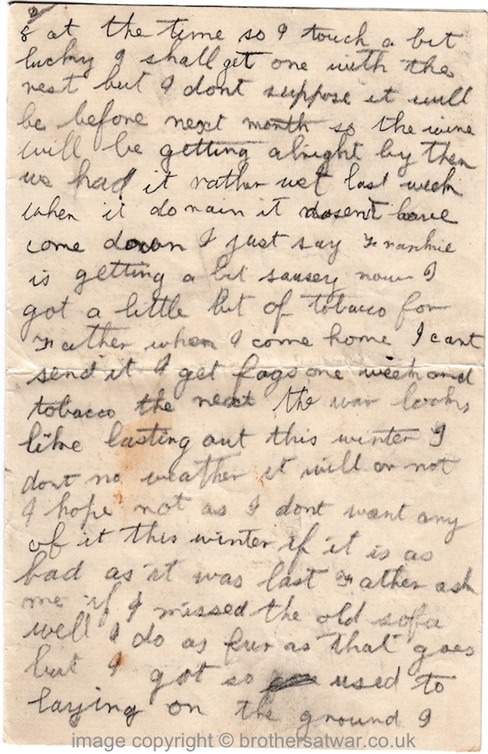 2
& at the time so I touch a bit
lucky I shall get one with the
rest but I dont suppose it will
be before next month so the wine
will be getting alright by then
we had it rather wet last week
when it do rain it dosent have
come down I just say Frankie
is getting a bit saucey now I
got a little bit of tobacco for
Father when I come home I cant
send it I get fags one week and
tobacco the next the war looks
like lasting out this winter I
dont no weather it will or not
I hope not as I dont want any
of it this winter if it is as
bad as it was last Father ask
me if I missed the old sofa
well I do as fur as that goes
but I got so used to
laying on the ground I
image copyright © brothersatwar.co.uk